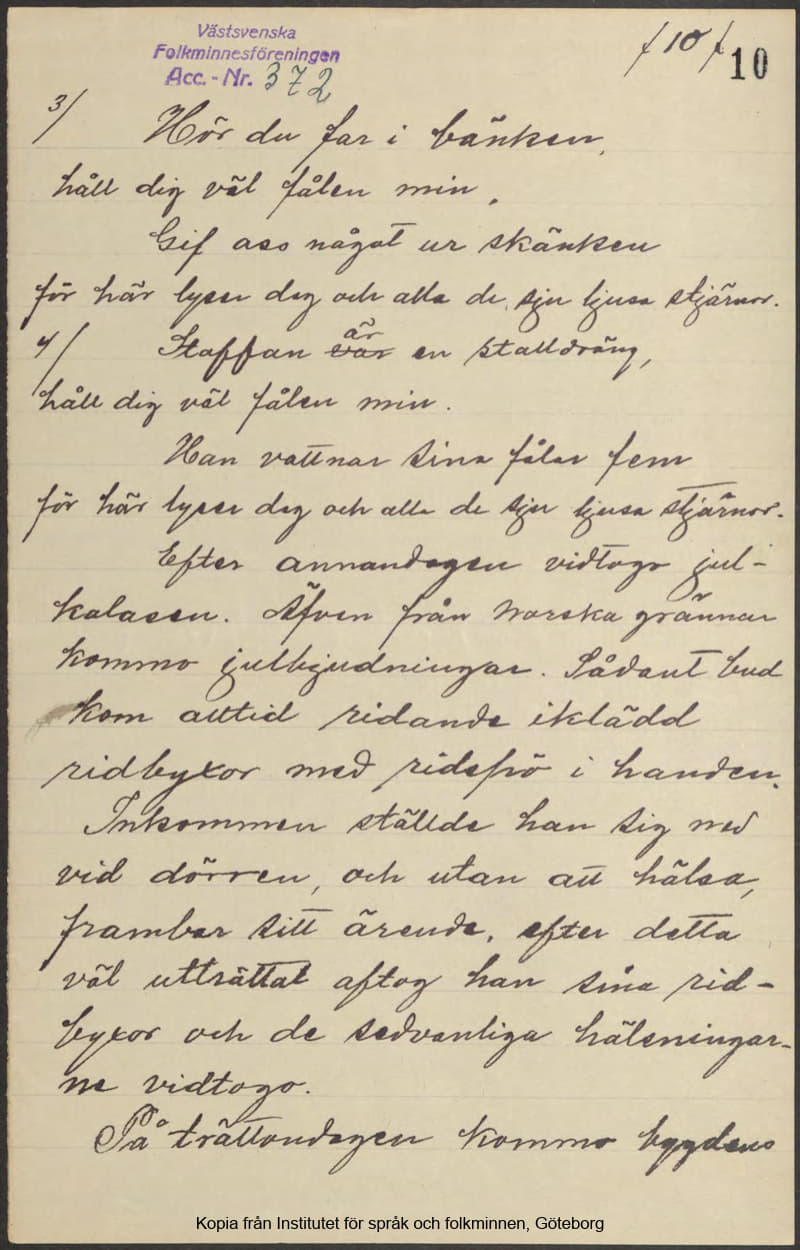 Västsvenska
Folkminnesföreningen
Acc. - Nr. 372
/10/
10
3/ Hör du far i bänken,
håll dig väl fålen min,
Gif oss något ur skänken
för här lyser dag och alla de sju ljusa stjärnor.
är
4/ Staffan var en stalldräng,
håll dig väl fålen min.
Han vattnar sina fålar fem
för här lyser dag och alla de sju ljusa stjärnor.
Efter annandagen vidtogo jul-
kalasen. Äfven från norska grännar
kommo julbjudningar. Sådant bud
kom alltid ridande iklädd
ridbyxor med ridspö i handen.
Inkommen ställde han sig ned
vid dörren, och utan att hälsa,
frambar sitt ärende, efter detta
väl utträttat aftog han sina rid-
byxor och de sedvanliga hälsningar-
ne vidtogo.
På trättondagen kommo bygdens
Kopia från Institutet för språk och folkminnen, Göteborg